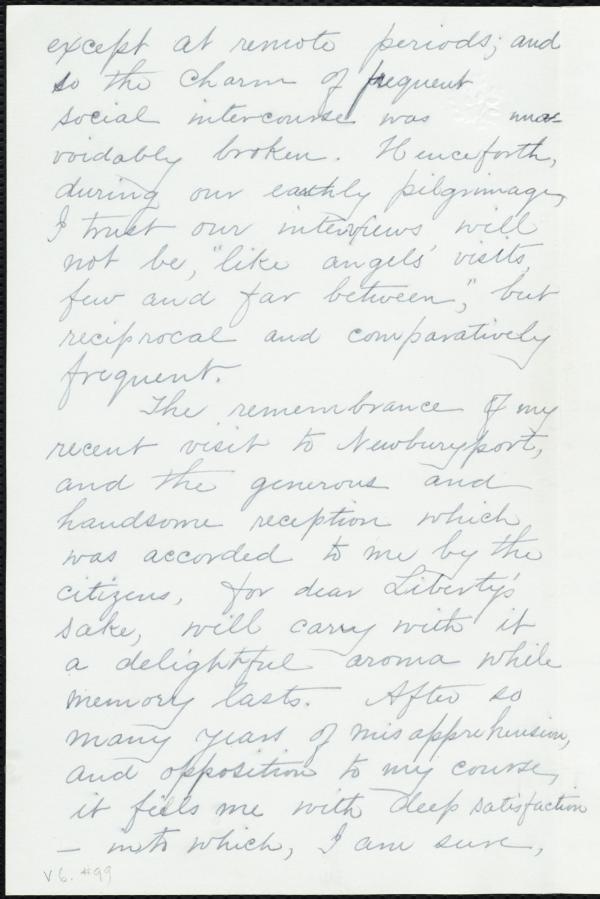 except at remote periods; and
so the charm of frequent
social intercourse was una-
voidably broken. Henceforth,
during our earthly pilgrimage,
I trust our interviews will
not be, "like angels' visits,
few and far between," but
reciprocal and comparatively
frequent.
The remembrance of my
recent visit to Newburyport,
and the generous and
handsome reception which
was accorded to me by the
citizens, for dear Liberty's
sake, will carry with it
a delightful aroma while
memory lasts. After so
many years of misapprehension,
and opposition to my course,
it fills me with deep satisfaction
— into which, I am sure,
V 6. #99